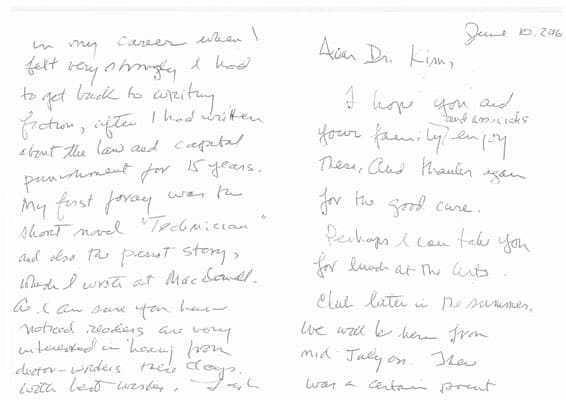 June 10. 2016
Dear Dr. Kim,
I hope you and
your family and associates enjoy
these, And thanks again
for the good care.
Perhaps I can take you
for lunch at the Arts
Club later in the summer,
We will be here from
mid-July on. There
was a certain point
in my career when I
felt very strongly I had
to get back to writing
fiction, after I had written
about the law and capital
punishment for 15 years.
My first foray was the
short novel "Technician"
and also the parrot story,
which I wrote at MacDowell.
As I am sure you have
noticed readers are very
interested in hearing from
doctor-writers these days.
With best wishes,